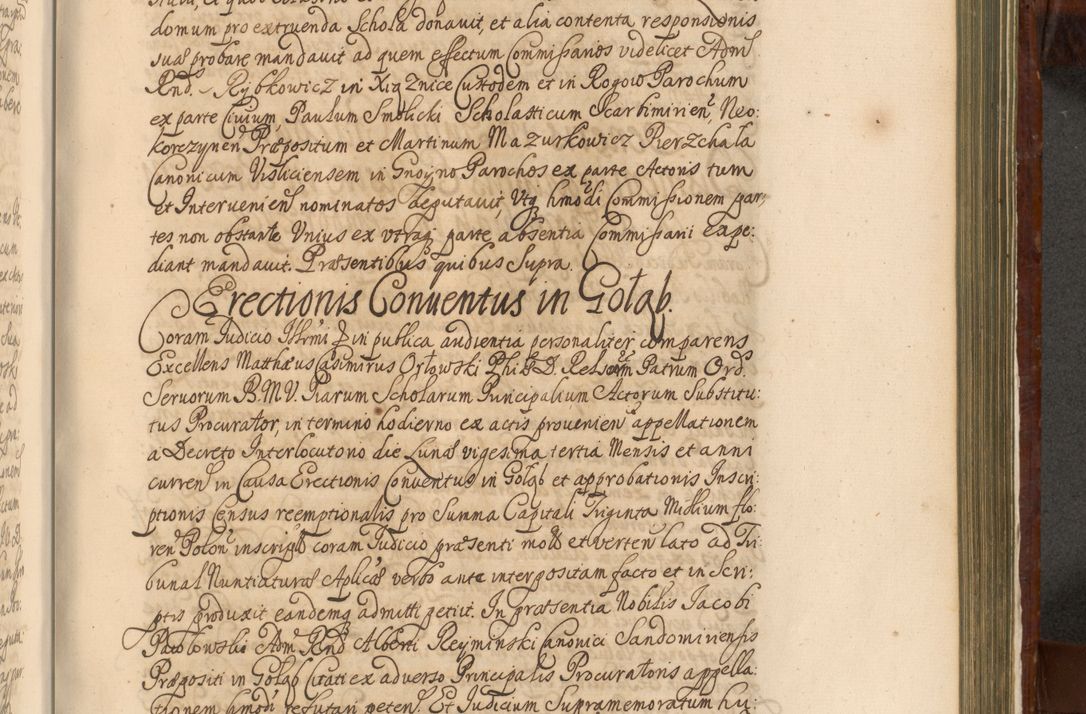 domum pro extruenda Schola donavit, et alia contenta responsionis
sua probare mandavit ad quem effectum Commissarios videlicet Adm
Rnd. Rybkowicz in Xiąznice Custodem et in Rogow Parochum
ex parte Civium, Paulum Smolicki Scholasticum Scarbimirien, Neo:
korczynen Præpositum et Martinum Mazurkowicz Pierzchała
Canonicum Visliciensem in Gnoyno Parochos ex parte Actoris tum
et Intervenien nominatos deputavit, Utq hmodi Commissionem par:
tes non obstante Unius ex utraq parte absentia Commissarii Expe:
diant mandavit. Præsentibus quibus Supra.
Erectionis Conventus in Gołąb.
Coram Judicio Illrmi in publica audientia personaliter comparens
Excellens Mathæus Casimirus Orłowski Phi D. Patrum Ord.
Servorum B. M. V. Piarum Scholarum Principalium Actorum Substitu:
tus Procurator, in termino hodierno ex actis provenien appellationem
a Decreto Interlocutorio die Lunæ vigesima tertia Mensis et anni
curren in Causa Erectionis Conventus in Gołąb et approbationis Inscri:
ptionis Census reemptionalis pro Summa Capitali Triginta Millium flo:
ren Polon inscript coram Judicio præsenti mot et verten lato ad Tri:
bunal Nuntiaturæ Aplicæ verbo ante interpositam facto et in Scri:
ptis produxit eandemq admitti petiit. In præsentia Nobilis Jacobi
Pawłowski Adm Rnd Alberti Reyminski Canonici Sandomiriensis
Præpositi in Gołąb Citati ex adverso Principalis Procuratoris appella:
tionem hmodi refutari peten. Et Judicium Supramemoratum hu: